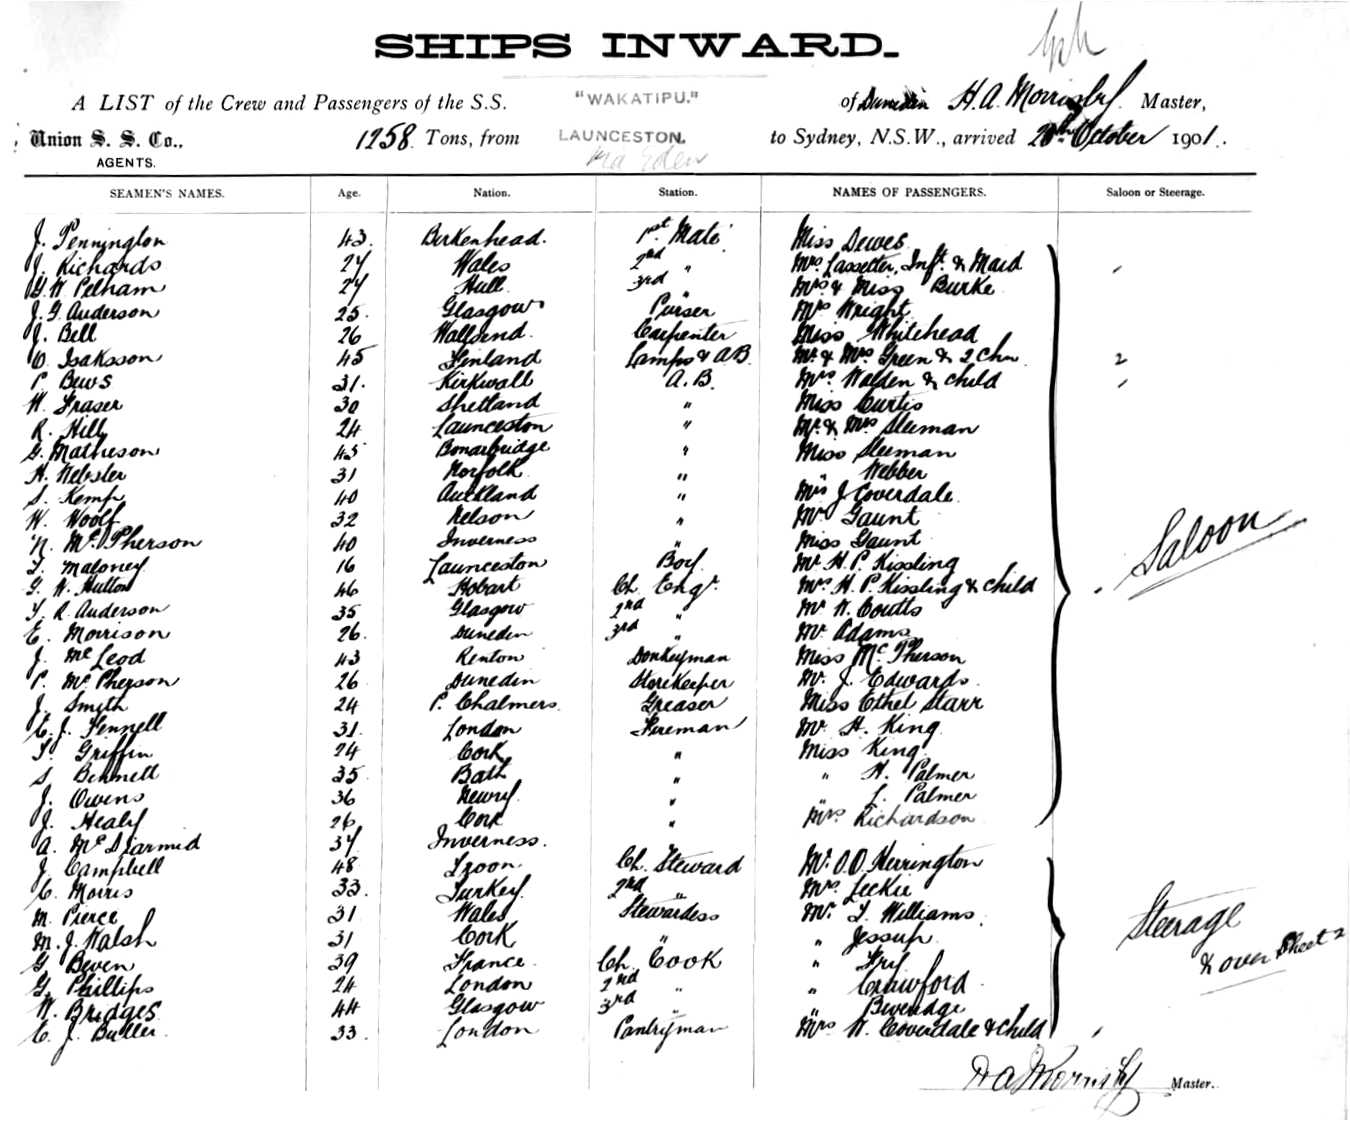 SHIPS INWARD.
A LIST of the Crew and Passengers of the S.S. "WAKATIPU." of Dunedin H. A. Morrisby. Master,
Union S. S. Co., 1258 Tons, from LAUNCESTON. to Sydney, N.S.W., arrived 20th October 1901.
AGENTS. via Eden
SEAMEN'S NAMES. Age. Nation. Station. NAMES OF PASSENGERS. Saloon or Steerage.
J. Pennington 43. Birkenhead. 1st Mate Miss Dewes
J. Richards 27 Wales 2nd " Mrs Lassetter, Inft. & Maid
G. W. Pelham 27 Hull 3rd " Mrs & Miss Burke
J. G. Anderson 25. Glasgow Purser Mrs Wright
J. Bell 26 Wallsend. Carpenter Miss Whitehead
O. Isaksson 45 Finland Lamps & A.B. Mr & Mrs Green & 2 Chn 2
P. Bews 31. Kirkwall A.B. Mrs Walden & child
W. Fraser 30 Shetland " Miss Curtis
R. Hill 24 Launceston " Mr & Mrs Sleeman
G. Matheson 45 Bonarbridge " Miss Sleeman
H. Webster 31 Norfolk " " Webber
S. Kemp 40 Auckland " Mrs J Coverdale
W. Woolf 32 Nelson " Mr Gaunt
N. McPherson 40 Inverness " Miss Gaunt
T. Maloney 16 Launceston Boy. Mr H. P. Kissling
G. W. Hutton 46 Hobart Ch. Engr. Mrs H. P. Kissling & child
T. R. Anderson 35 Glasgow 2nd " Mr W. Coutts
E. Morrison 26. Dunedin 3rd " Mr Adams
J. McLeod 43 Renton Donkeyman Miss McPherson
P. McPherson 26 Dunedin Storekeeper Mr. J. Edwards
J. Smith 24 P. Chalmers. Greaser Miss Ethel Starr
C. J. Fennell 31. London Fireman Mr H. King
T. Griffin 24 Cork " Miss King
S. Bennett 35 Bath " " H. Palmer
J. Owens 36 Newry. " " L. Palmer
J. Healy 26 Cork " Mrs Richardson
Saloon
A. McDiarmid 37 Inverness.
J. Campbell 48 Troon Ch. Steward Mr. O. O. Herrington
C. Morris 33. Turkey. 2nd " Mrs. Leckie
M. Pierce 31 Wales Stewardess Mr. T. Williams.
M. J. Walsh 31 Cork " " Jessup.
G. Beven 39 France. Ch. Cook " Fry
G. Phillips 24 London 2nd " " Crawford
W. Bridges 44 Glasgow 3rd " " Beveridge
C. J. Butler 33. London Pantryman Mrs W. Coverdale & Child
Steerage
& over Sheet 2
H A Morrisby Master.